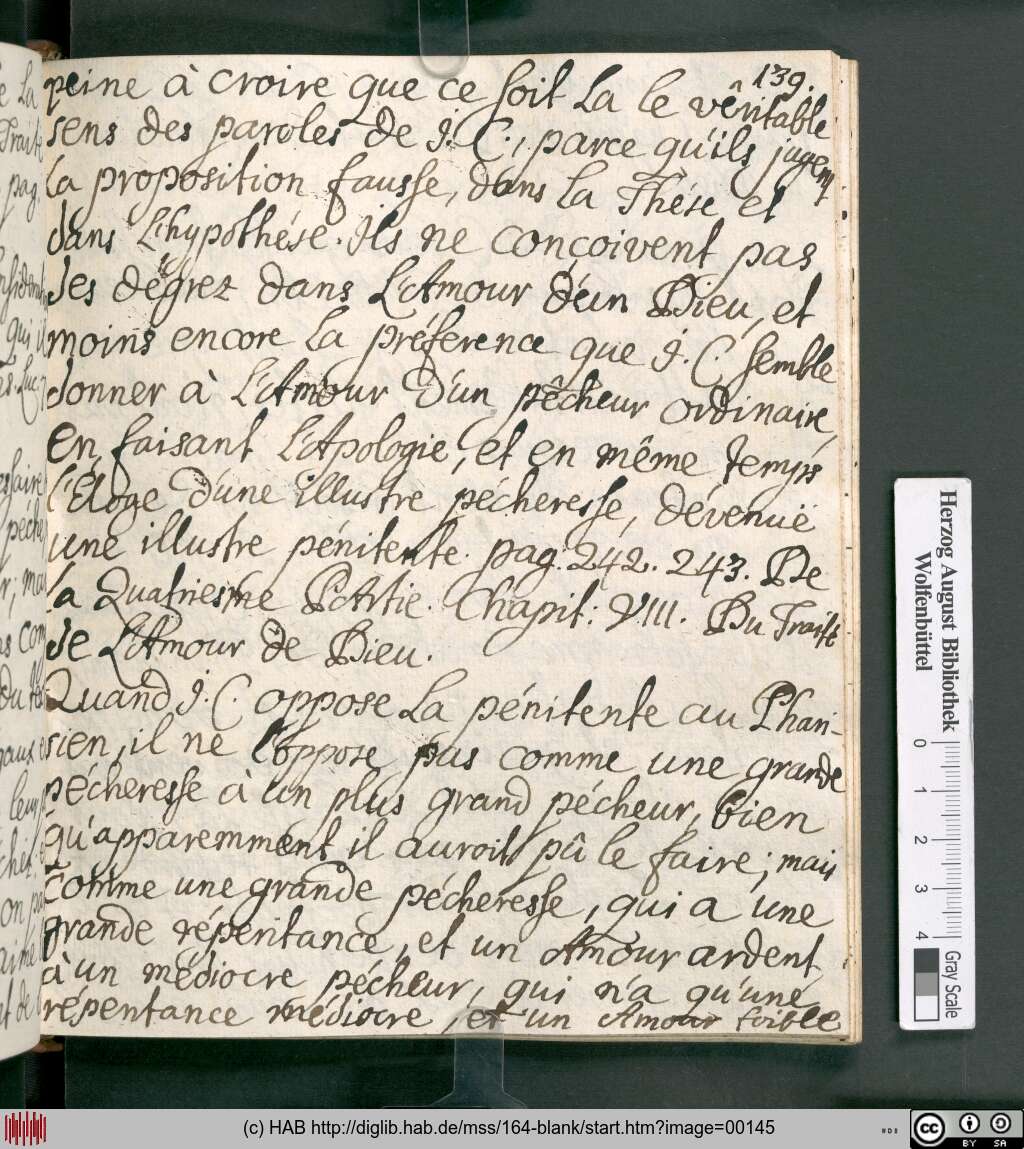 139.
peine à croire que ce soit La le vêritable
sens des paroles de J. C., parce qu'ils jugent
La proposition fausse, dans La Thése et
dans L'hypothése. Ils ne conçoivent pas
des dégrez dans L'Amour d'un Dieu, et
moins encore La préference que J. C. semble
donner à L'Amour d'un pêcheur ordinaire,
en faisant L'Apologie, et en même temps
l'Eloge d'une illustre pécheresse, dévenuë
une illustre pénitente. pag. 242. 243. De
La Quatriesme PArtie. Chapit: VIII. Du Traité
de L'Amour de Dieu.
Quand J. C. oppose La pénitente au Phari-
sien, il ne l'oppose pas comme une grande
pécheresse à un plus grand pécheur, bien
qu'apparemment il auroit pû le faire; mais
comme une grande pécheresse, qui a une
grande répentance, et un Amour ardent,
à un médiocre pécheur, qui n'a qu'une
répentance médiocre, et un Amour foible
Herzog August Bibliothek
Wolfenbüttel
0 1 2 3 4
Gray Scale
(c) HAB http://diglib.hab.de/mss/164-blank/start.htm?image=00145
cc BY SA